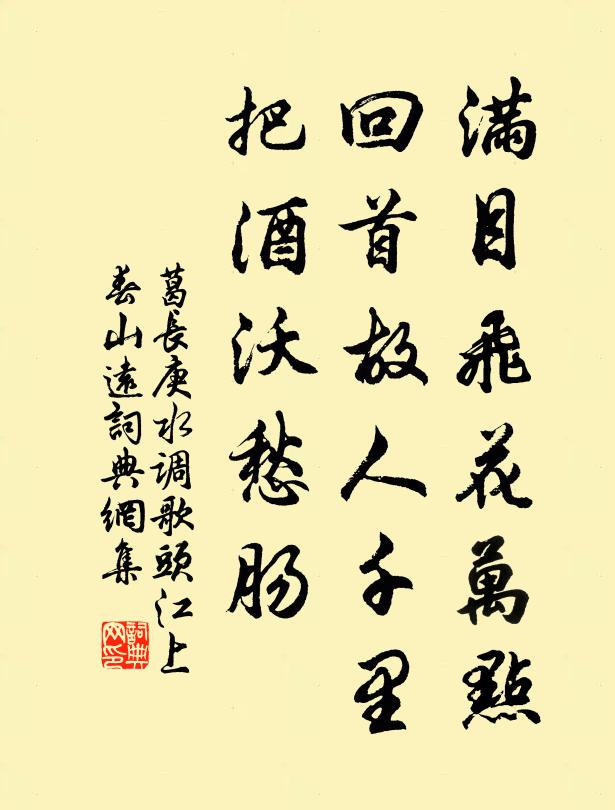 滿目飛花萬點
回首故人千里
把酒沃愁腸
葛長庚水调歌頭江上
春山遠詞典網集
詞典
网印